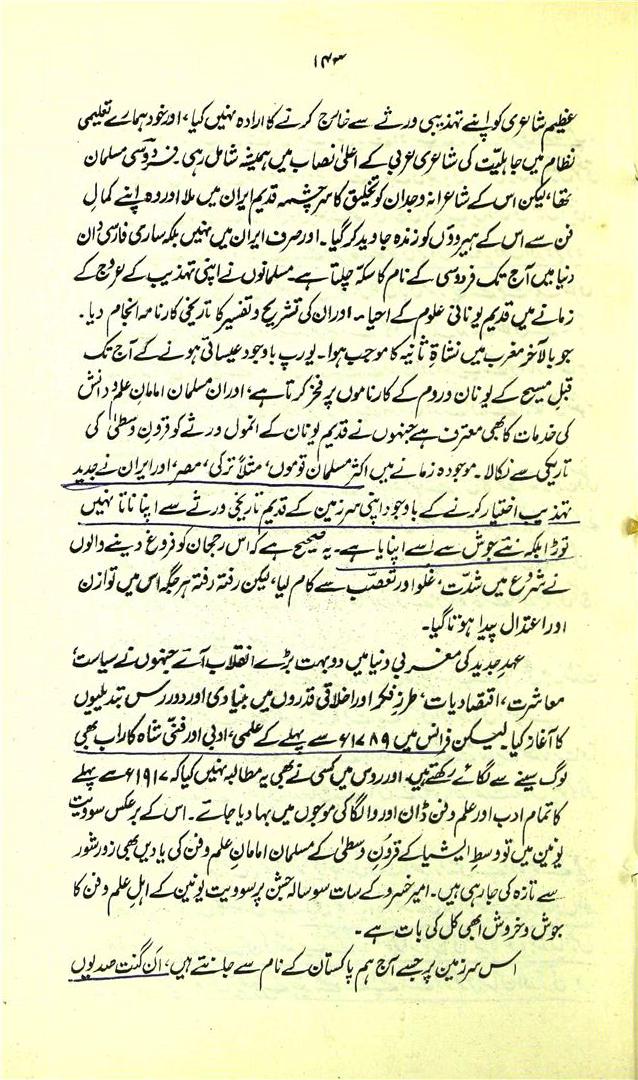 ۱۴۳
عظیم شاعری کو اپنے تہذیبی ورثے سے خارج کرنے کا ارادہ نہیں کیا، اور خود ہمارے تعلیمی
نظام میں جاہلیّت کی شاعری عربی کے اعلیٰ نصاب میں ہمیشہ شامل رہی۔ فردوسی مسلمان
تھا، لیکن اس کے شاعرانہ وجدان کو تخلیق کا سرچشمہ قدیم ایران میں ملا اور وہ اپنے کمالِ
فن سے اس کے ہیروؤں کو زندہ جاوید کر گیا۔ اور صرف ایران میں نہیں بلکہ ساری فارسی دان
دنیا میں آج تک فردوسی کے نام کا سکہ چلتا ہے۔ مسلمانوں نے اپنی تہذیب کے عروج کے
زمانے میں قدیم یونانی علوم کے احیا۔ اور ان کی تشریح و تفسیر کا تاریخی کارنامہ انجام دیا۔
جو بالآخر مغرب میں نشاۃِ ثانیہ کا موجب ہوا۔ یورپ باوجود عیسائی ہونے کے آج تک
قبلِ مسیح کے یونان و روم کے کارناموں پر فخر کرتا ہے، اور ان مسلمان امامانِ علم و دانش
کی خدمات کا بھی معترف ہے جنہوں نے قدیم یونان کے انمول ورثے کو قرونِ وسطیٰ کی
تاریکی سے نکالا۔ موجودہ زمانے میں اکثر مسلمان قوموں، مثلاً ترکی، مصر، اور ایران نے جدید
تہذیب اختیار کرنے کے باوجود اپنی سرزمین کے قدیم تاریخی ورثے سے اپنا ناتا نہیں
توڑا بلکہ نئے جوش سے اسے اپنایا ہے۔ یہ صحیح ہے کہ اس رجحان کو فروغ دینے والوں
نے شروع میں شدّت، غلو اور تعصّب سے کام لیا، لیکن رفتہ رفتہ ہر جگہ اس میں توازن
اور اعتدال پیدا ہوتا گیا۔
عہدِ جدید کی مغربی دنیا میں دو بہت بڑے انقلاب آئے جنہوں نے سیاست،
معاشرت، اقتصادیات، طرزِ فکر اور اخلاقی قدروں میں بنیادی اور دور رس تبدیلیوں
کا آغاز کیا لیکن فرانس میں ۱۷۸۹ء سے پہلے کے علمی، ادبی اور فنّی شاہ کار اب بھی
لوگ سینے سے لگائے رکھتے ہیں۔ اور روس میں کسی نے بھی یہ مطالبہ نہیں کیا کہ ۱۹۱۷ء سے پہلے
کا تمام ادب اور علم و فن ڈان اور والگا کی موجوں میں بہا دیا جائے۔ اس کے برعکس سوویت
یونین میں تو وسطِ ایشیا کے قرونِ وسطیٰ کے مسلمان امامانِ علم و فن کی یادیں بھی زور شور
سے تازہ کی جا رہی ہیں۔ امیر خسرو کے سات سو سالہ جشن پر سوویت یونین کے اہلِ علم و فن کا
جوش و خروش ابھی کل کی بات ہے۔
اس سرزمین پر جسے آج ہم پاکستان کے نام سے جانتے ہیں، اَن گنت صدیوں